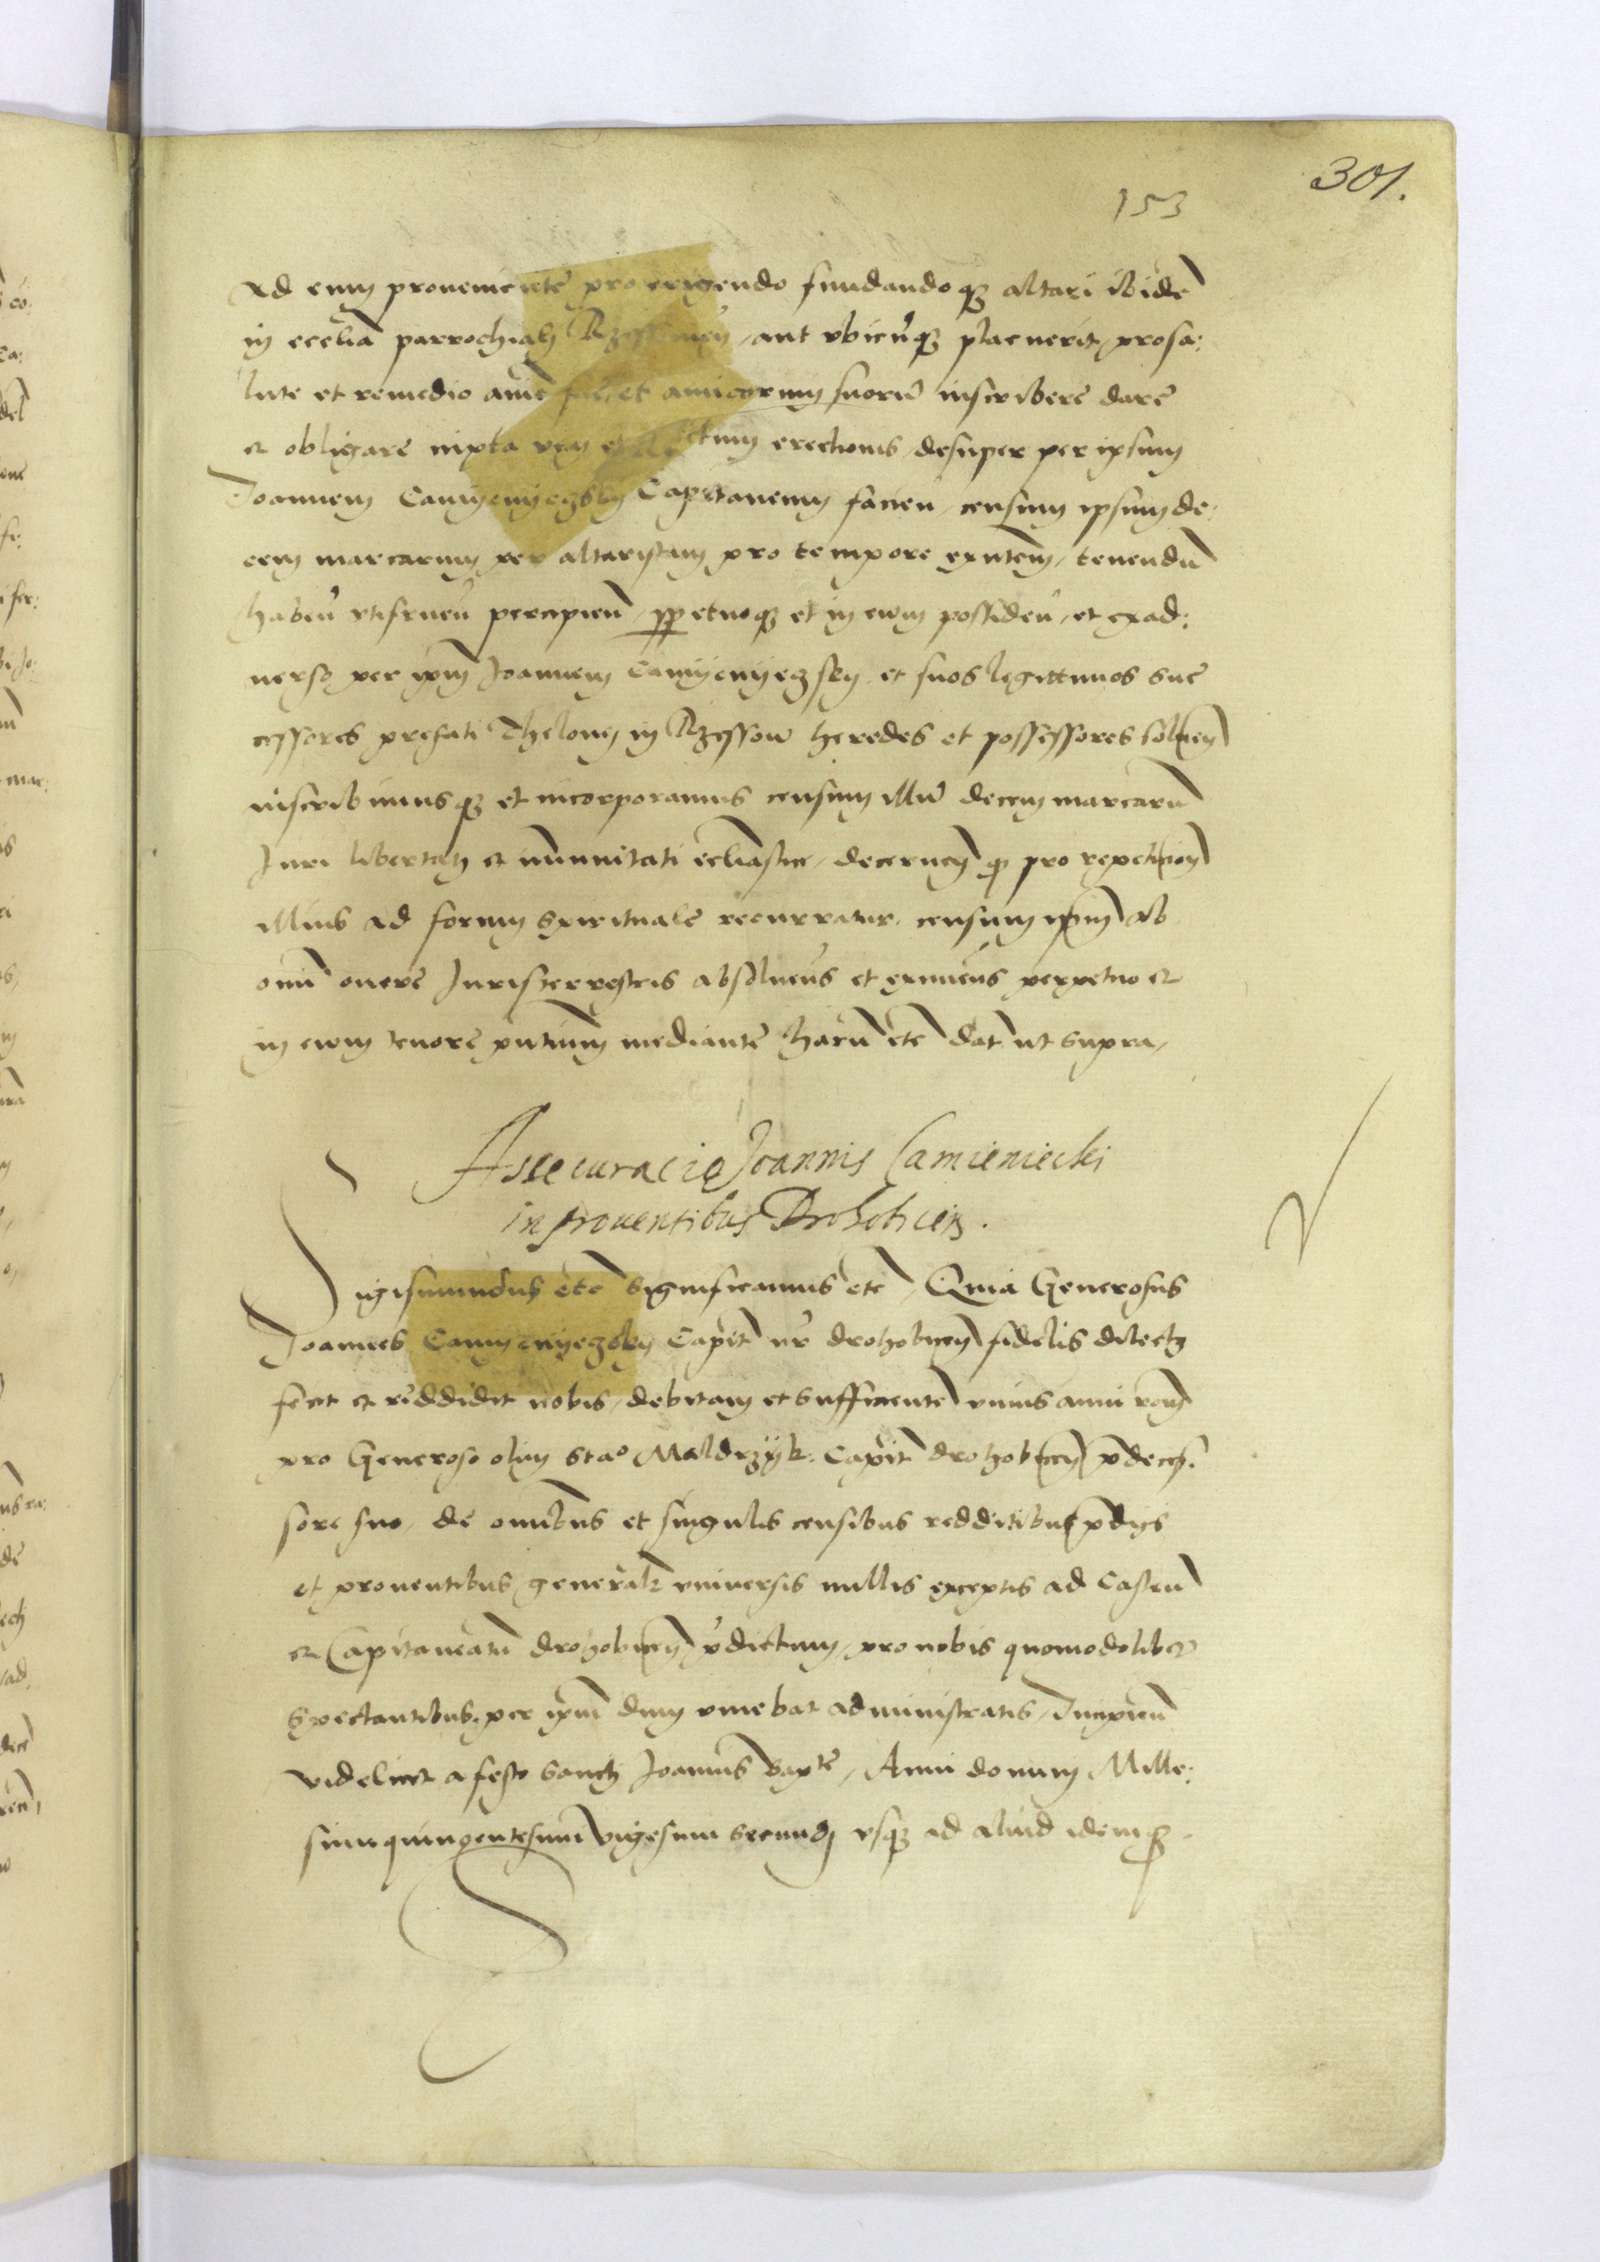 301.
153
ad eum proveniente pro erigendo fundandoq3 altari ibide
in ecclia parrochiali aut ubicuq3 placuerit, pro sa:
lute et remedio anie sue et amicorum suorū inscribere dare
et obligare iuxta vim et erectionis desuper per ipsum
Joannem Camyenyeczsky Capitaneum facien censum ipsum de:
cem marcarum per altaristam pro tempore exntem, tenendū
habēn vtifruēn percipien ppetuoq3 et in evum possidēn, et exad:
verso per ipm Joannem Camyenyeczsky et suos legittimos suc
cessores prefati Thelonei in Rzessow heredes et possessores solven
inscribimusq3 et incorporamus censum illū decem marcarū
Juri libertati et immunitati eccliastice, decernen q pro repeticione
illius ad forum spirituale recurratur, censum ipm ab
omni onere Juris terrestris absolvens et eximens perpetuo et
in evum tenore pntium mediante harū etc dat ut supra,
Assecuracio Joannis Camieniecki
in proventibus Drohobicen.
Sigismundus etc significamus etc Quia Generosus
Joannes Camyenyeczsky Capit nr drohobicen fidelis dilectg
fecit et reddidit nobis, debitam et sufficiente unius anni rom
pro Generoso olim Stao Maldrzyk. Capit drohobicen pdeces:
sore suo, de omibus et singulis censibus redditibus pdiis
et proventibus generalr universis nullis exceptis ad Castru
et Capitaneatu drohobicen pdictum, pro nobis quomodolibet
spectantibus, per ipm dum vivebat administratis, Incipien
videlicet a festo Sancti Joannis bapte, Anni domini Mille:
simiquingentesimi vigesimi secundi usq3 ad aliud idem